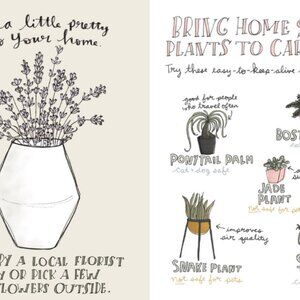 a little pretty
your home.
A LOCAL FLORIST
OR PICK A FEW
FLOWERS OUTSIDE.
BRING HOME
PLANTS TO
Try these easy-to-keep-alive
good for people
who travel often
PONYTAIL PALM
cat + dog safe
JADE
PLANT
not safe for
improves
air quality
SNAKE PLANT
not safe for pets